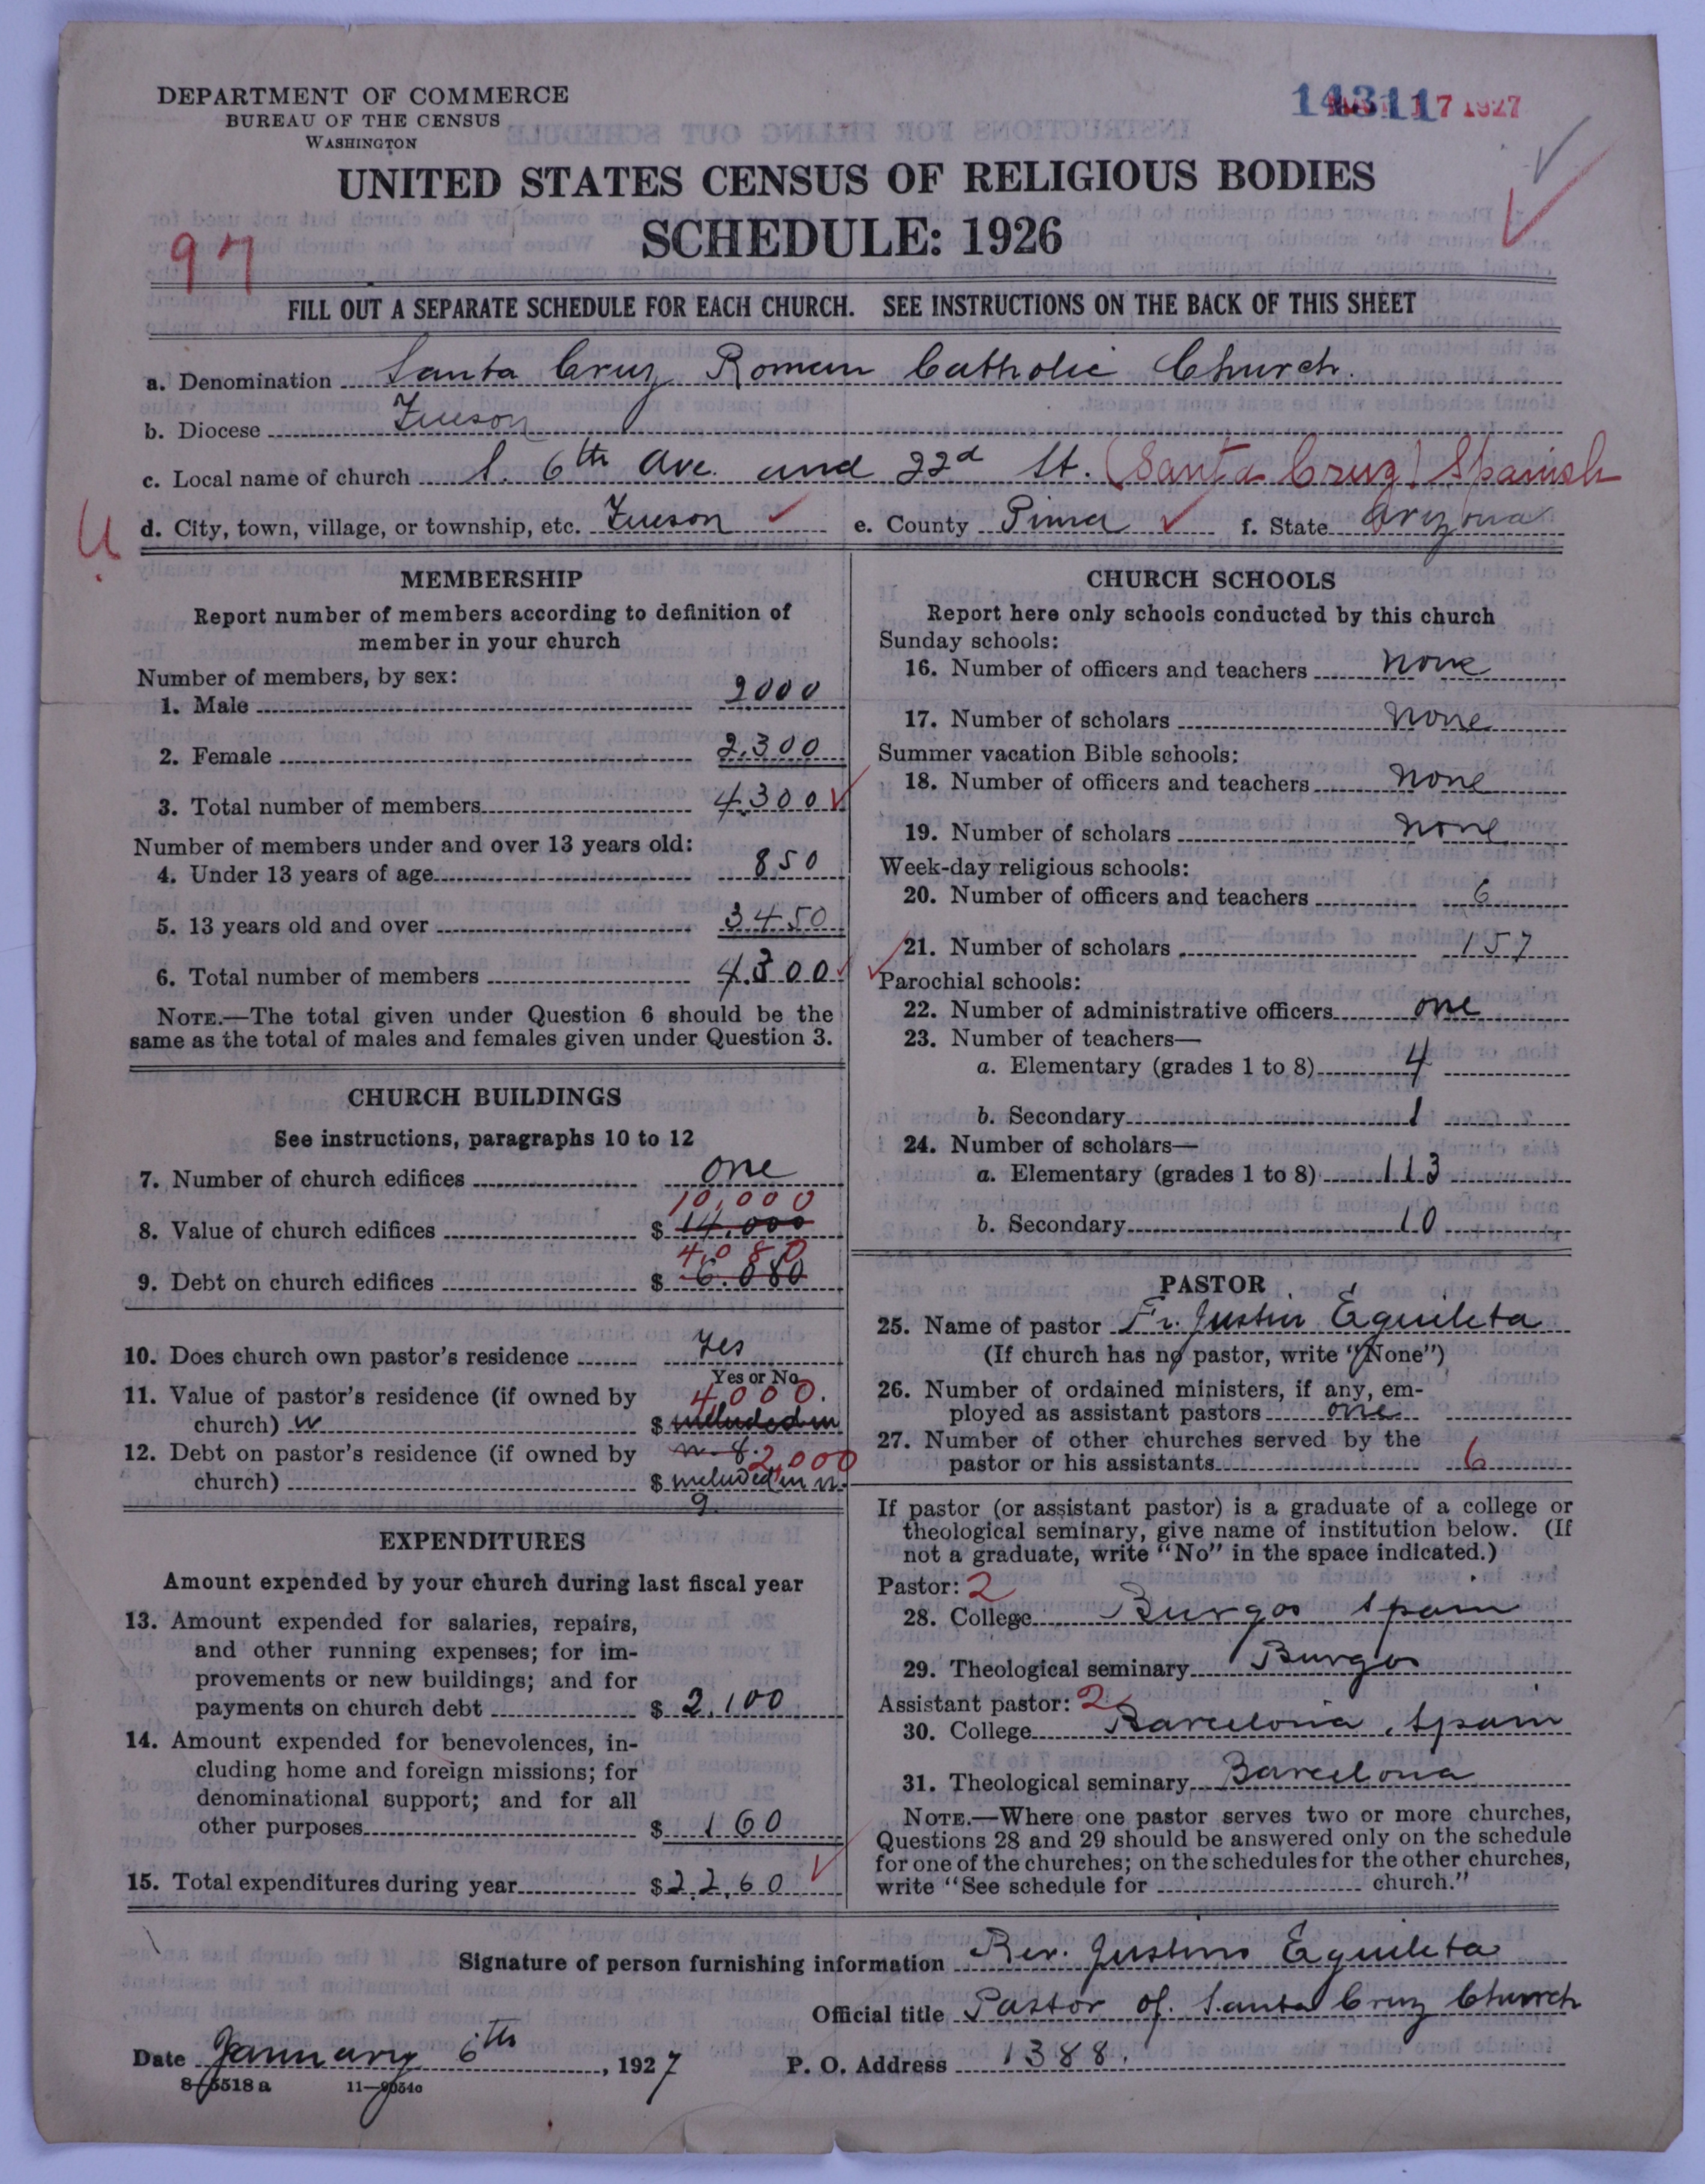 DEPARTMENT OF COMMERCE
BUREAU OF THE CENSUS
WASHINGTON
14311 17 1927
UNITED STATES CENSUS OF RELIGIOUS BODIES
SCHEDULE: 1926
97
FILL OUT A SEPARATE SCHEDULE FOR EACH CHURCH. SEE INSTRUCTIONS ON THE BACK OF THIS SHEET
a. Denomination Santa Cruz Roman Catholic Church.
b. Diocese Tucson
c. Local name of church S. 6th Ave. and 22d St. (Santa Cruz) Spanish
U
d. City, town, village, or township, etc. Tucson e. County Pima f. State Arizona
MEMBERSHIP
Report number of members according to definition of
member in your church
Number of members, by sex:
1. Male 2000
2. Female 2,300
3. Total number of members 4300
Number of members under and over 13 years old:
4. Under 13 years of age 850
5. 13 years old and over 3450
6. Total number of members 4,300
NOTE.—The total given under Question 6 should be the
same as the total of males and females given under Question 3.
CHURCH BUILDINGS
See instructions, paragraphs 10 to 12
7. Number of church edifices one
10,000
8. Value of church edifices $ 14,000
4,080
9. Debt on church edifices $ 6.080
10. Does church own pastor's residence Yes
Yes or No
11. Value of pastor's residence (if owned by 4000.
church) $ included in
n. 8.
12. Debt on pastor's residence (if owned by 2,000
church) $ included in n.
9
EXPENDITURES
Amount expended by your church during last fiscal year
13. Amount expended for salaries, repairs,
and other running expenses; for im-
provements or new buildings; and for
payments on church debt $ 2,100
14. Amount expended for benevolences, in-
cluding home and foreign missions; for
denominational support; and for all
other purposes $ 160
15. Total expenditures during year $ 2,260
CHURCH SCHOOLS
Report here only schools conducted by this church
Sunday schools:
16. Number of officers and teachers none
17. Number of scholars none
Summer vacation Bible schools:
18. Number of officers and teachers none
19. Number of scholars none
Week-day religious schools:
20. Number of officers and teachers 6
21. Number of scholars 157
Parochial schools:
22. Number of administrative officers one
23. Number of teachers—
a. Elementary (grades 1 to 8) 4
b. Secondary 1
24. Number of scholars—
a. Elementary (grades 1 to 8) 113
b. Secondary 10
PASTOR
25. Name of pastor Fr. Justin Eguileta
(If church has no pastor, write "None")
26. Number of ordained ministers, if any, em-
ployed as assistant pastors one
27. Number of other churches served by the
pastor or his assistants 6
If pastor (or assistant pastor) is a graduate of a college or
theological seminary, give name of institution below. (If
not a graduate, write "No" in the space indicated.)
Pastor: 2
28. College Burgos Spain
29. Theological seminary Burgos
Assistant pastor: 2
30. College Barcelona, Spain
31. Theological seminary Barcelona
NOTE.—Where one pastor serves two or more churches,
Questions 28 and 29 should be answered only on the schedule
for one of the churches; on the schedules for the other churches,
write "See schedule for church."
Signature of person furnishing information Rev. Justino Eguileta
Official title Pastor of Santa Cruz Church
Date January 6th, 1927 P. O. Address 1388.
8—5518 a 11—9054c